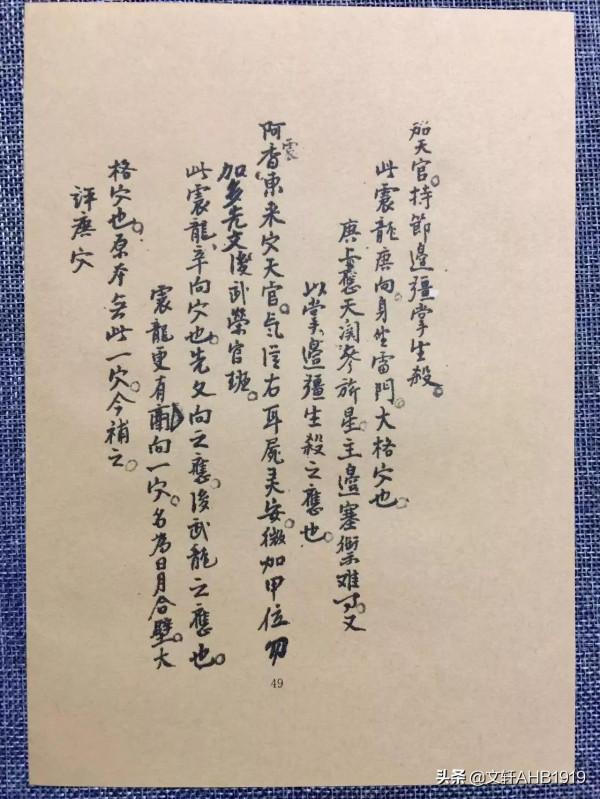 天官。持節邊疆掌生殺。
此震龍庚向。身坐雷門。大格穴也。
庚上應天関參旂星。主邊塞禦难。又
以掌邊疆生殺之應也。
阿香震東来穴天官。氣從右耳屍灵安。微加甲位勿
加多。先文後武榮官班。
此震龍、辛向穴也。先文向之應。後武龍之應也。
震龍更有向一穴。名為日月合壁。大
格穴也。原本無此一穴。今補之。
評庚穴
49
头条 @文轩AHB1919